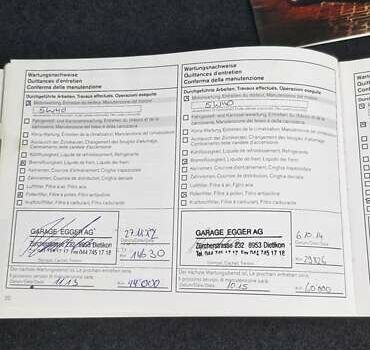 Wartungsnachweise
Quittances d'entretien
Conferma della manutenzione
Durchgeführte Arbeiten, Travaux effectués, Operazioni eseguite
Motorwartung, Entretien du moteur, Manutenzione del motore
5W40
Fahrgestell- und Karosseriewartung, Entretien du châssis et de la
carrosserie, Manutenzione del telaio e della carrozzeria
Klima-Wartung, Entretien de la climatisation, Manutenzione del climatizzatore
Austausch der Zündkerzen, Changement des bougies d'allumage,
Cambiamento delle candele d'accensione
Kühlflüssigkeit, Liquide de refroidissement, Refrigerante
Bremsflüssigkeit, Liquide de frein, Liquido dei freni
Keilriemen, Courroie d'entraînement, Cinghia trapezoidale
Zahnriemen, Courroie de distribution, Cinghia dentata
Luftfilter, Filtre à air, Filtro aria
Pollenfilter, Filtre à pollen, Filtro antipolline
Kraftstofffilter, Filtre à carburant, Filtro carburante
GARAGE EGGER AG
Zürcherstrasse 232 8953 Dietikon
Tel. 044 745 17 17 Fax 044 745 17 18
Stempel, Cachet, Timbro
Datum/Date/Data
km 14630
Der nächste Wartungsdienst ist, Le prochain entretien sera,
Il prossimo servizio di manutenzione sarà:
Datum/Date/Data 11.13
km 44'000
20
Wartungsnachweise
Quittances d'entretien
Conferma della manutenzione
Durchgeführte Arbeiten, Travaux effectués, Operazioni eseguite
Motorwartung, Entretien du moteur, Manutenzione del motore
5W40
Fahrgestell- und Karosseriewartung, Entretien du châssis et de la
carrosserie, Manutenzione del telaio e della carrozzeria
Klima-Wartung, Entretien de la climatisation, Manutenzione del climatizzatore
Austausch der Zündkerzen, Changement des bougies d'allumage,
Cambiamento delle candele d'accensione
Kühlflüssigkeit, Liquide de refroidissement, Refrigerante
Bremsflüssigkeit, Liquide de frein, Liquido dei freni
Keilriemen, Courroie d'entraînement, Cinghia trapezoidale
Zahnriemen, Courroie de distribution, Cinghia dentata
Luftfilter, Filtre à air, Filtro aria
Pollenfilter, Filtre à pollen, Filtro antipolline
Kraftstofffilter, Filtre à carburant, Filtro carburante
GARAGE EGGER AG
Zürcherstrasse 232 8953 Dietikon
Tel. 044 745 17 17 Fax 044 745 17 18
Stempel, Cachet, Timbro
6.10.14
Datum/Date/Data
km
Der nächste Wartungsdienst ist, Le prochain entretien sera,
Il prossimo servizio di manutenzione sarà:
Datum/Date/Data 10.15
km 60000